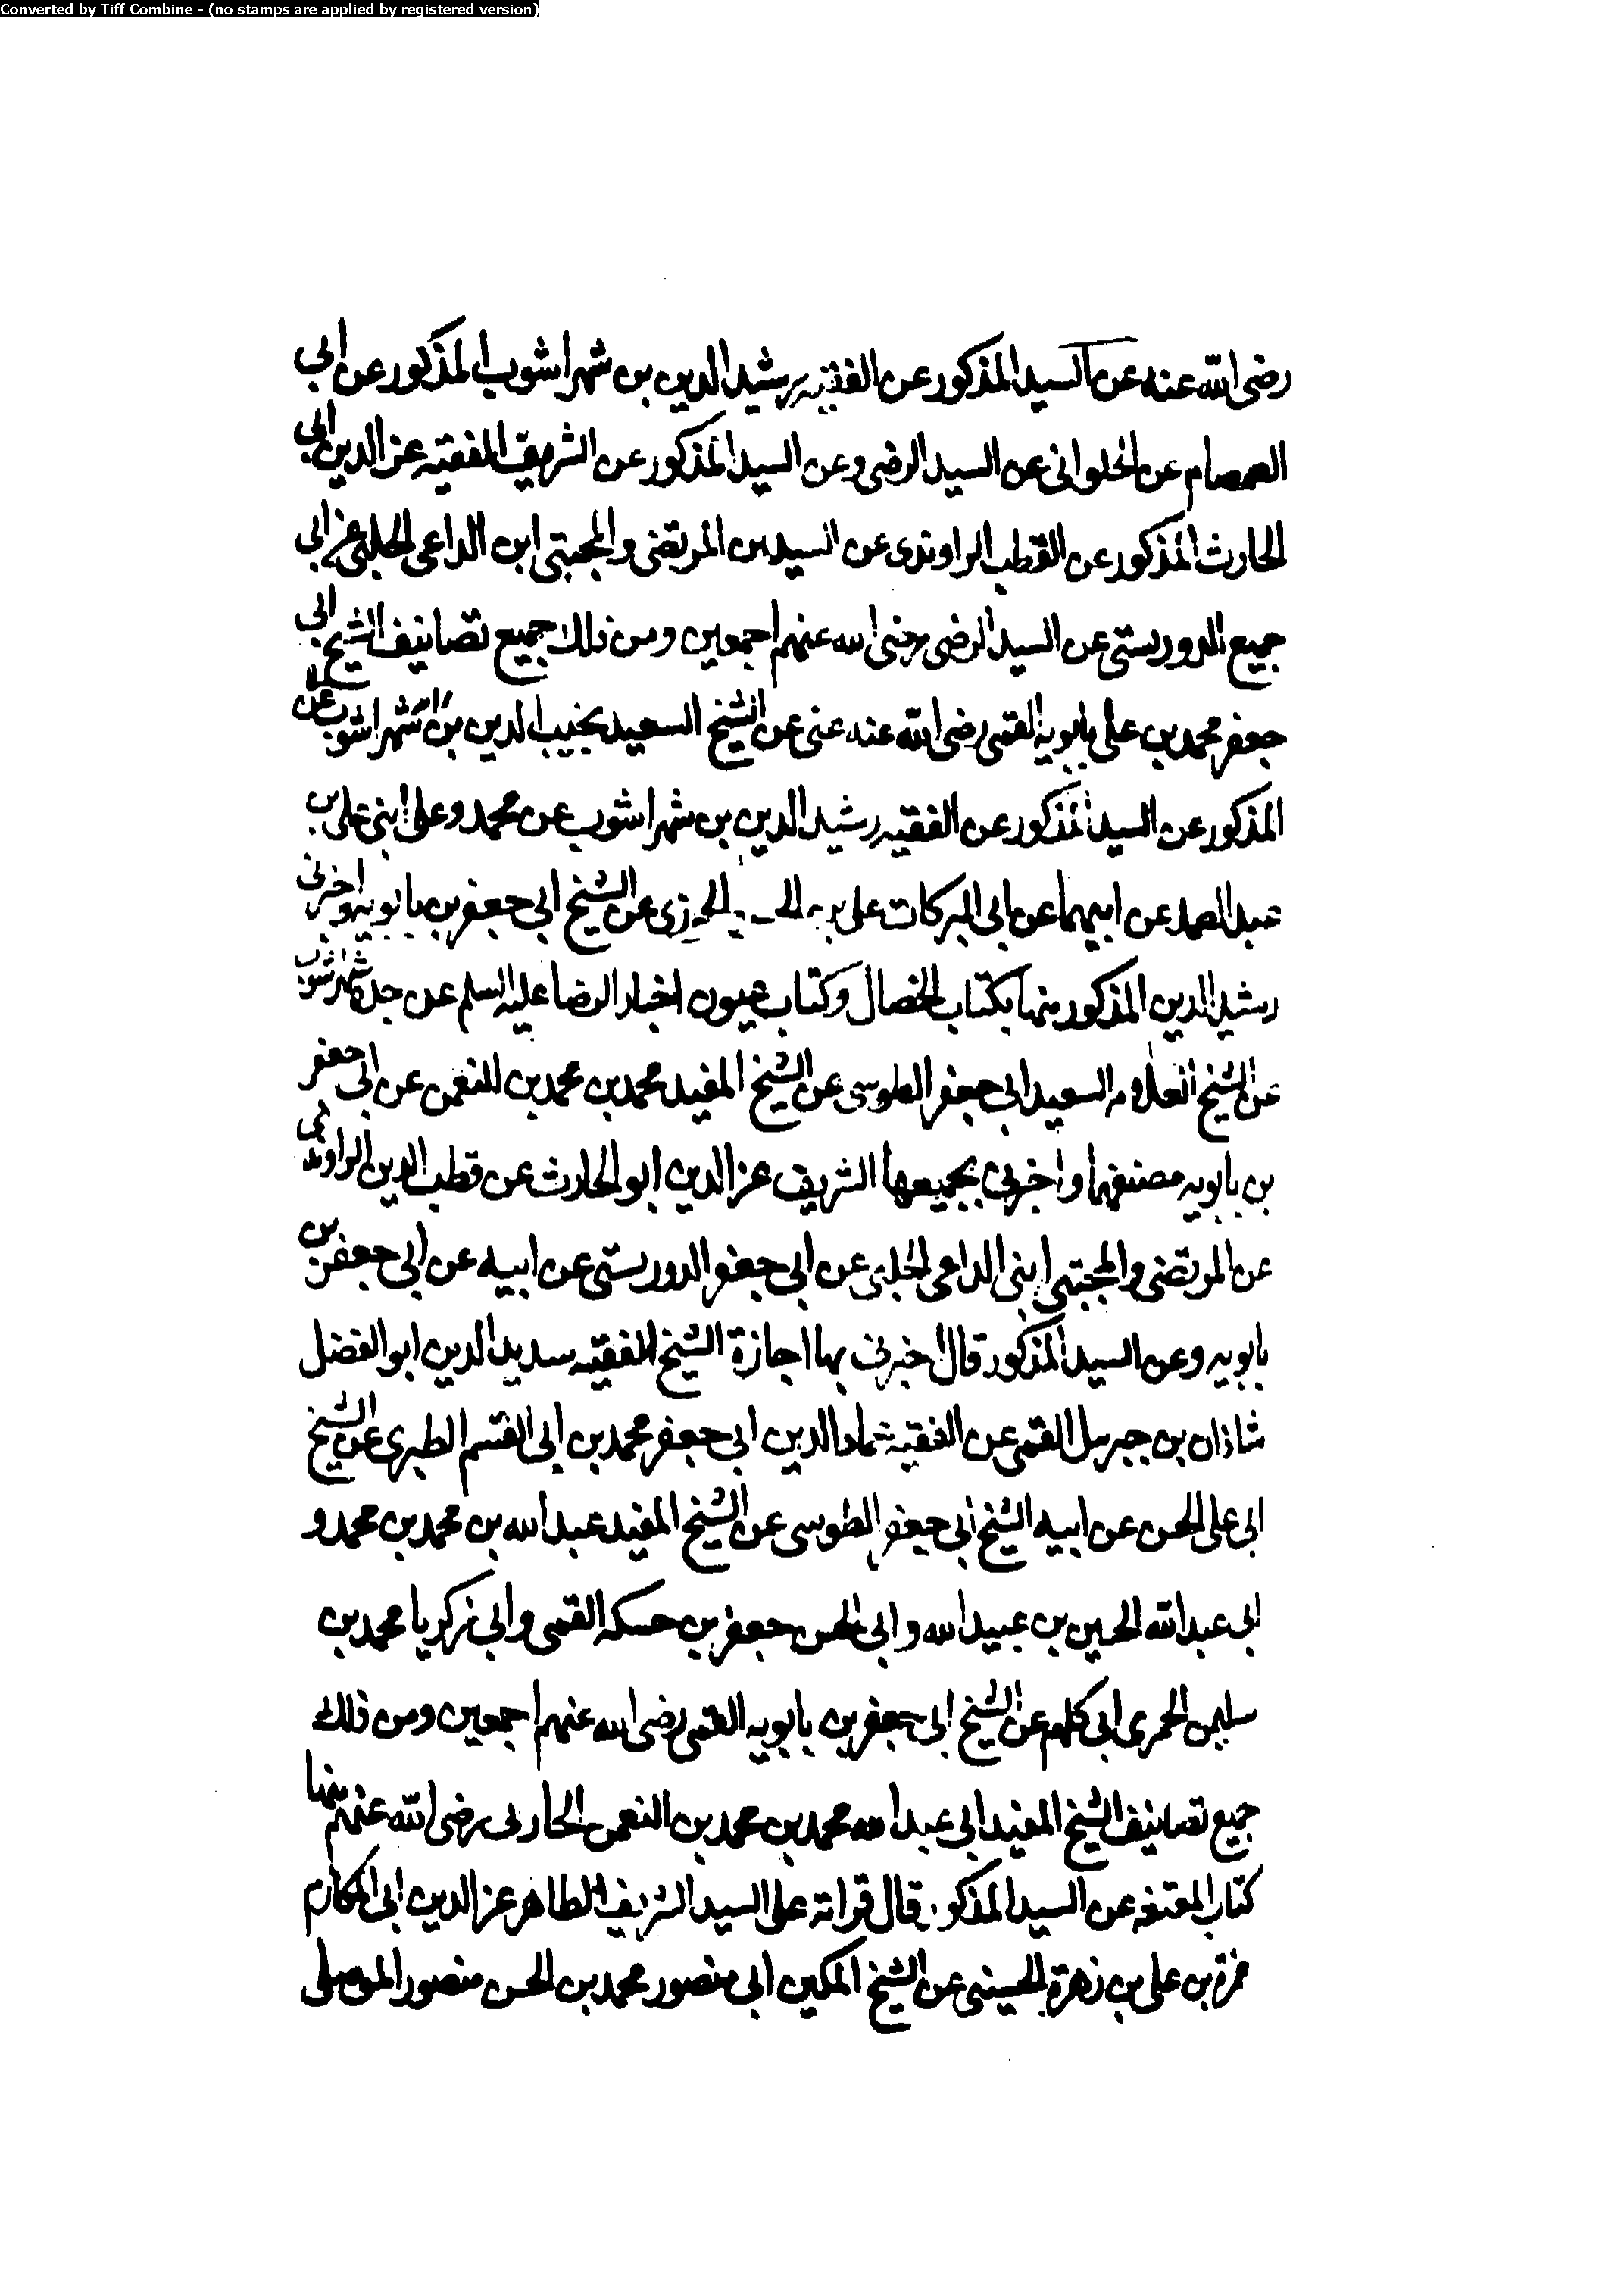 Converted by Tiff Combine - (no stamps are applied by registered version)
رضى الله عنه عن السيد المذكور عن الفقيه رشيد الدين بن شهراشوب المذكور عن ابي
الصمصام عن الحلوانى عن السيد الرضى وعن السيد المذكور عن الشريف الفقيه عز الدين ابي
الحارث المذكور عن القطب الراوندى عن السيدين المرتضى والمجتبى ابن الداعى الحلبى عن ابي
جميع الدوريستى عن السيد الرضى رضى الله عنهم اجمعين ومن ذلك جميع تصانيف الشيخ ابي
جعفر محمد بن على بابويه القمى رضى الله عنه عنى عن الشيخ السعيد نجيب الدين بن شهراشوب عن
المذكور عن السيد المذكور عن الفقيه رشيد الدين بن شهراشوب عن محمد وعلى ابنى على بن
عبد الصمد عن ابيهما عن ابى البركات على عن الشيخ ابي جعفر بن بابويه واخبرنى
رشيد الدين المذكور منها بكتاب الخصال وكتاب عيون اخبار الرضا عليه السلم عن جده شهراشوب
عن الشيخ العلامه السعيد ابي جعفر الطوسى عن الشيخ المفيد محمد بن محمد بن النعمن عن ابي جعفر
بن بابويه مصنفهما واخبرنى بجميعها الشريف عز الدين ابو الحارث عن قطب الدين الراوندى
عن المرتضى والمجتبى ابنى الداعى الحلبى عن ابى جعفر الدوريستى عن ابيه عن ابي جعفر بن
بابويه وعن السيد المذكور قال اخبرنى بها اجازة الشيخ الفقيه سديد الدين ابو الفضل
شاذان بن جبرىل القمى عن الفقيه عماد الدين ابي جعفر محمد بن ابى القسم الطبرى عن الشيخ
ابى على الحسن عن ابيه الشيخ ابى جعفر الطوسى عن الشيخ المفيد عبد الله بن محمد بن محمد و
ابى عبد الله الحسين بن عبيد الله وابى الحسن جعفر بن حسكه القمى وابي زكريا محمد بن
سليمن الحمرى ابى كلهم عن الشيخ ابى جعفر بن بابويه القمى رضى الله عنهم اجمعين ومن ذلك
جميع تصانيف الشيخ المفيد ابى عبد الله محمد بن محمد بن النعمن الحارثى رضى الله عنهم منها
كتاب المقنعه عن السيد المذكور قال قراته على السيد الشريف الطاهر عز الدين ابى المكارم
حمزة بن على بن زهرة الحسينى عن الشيخ المكين ابى منصور محمد بن الحسن منصور الموصلى